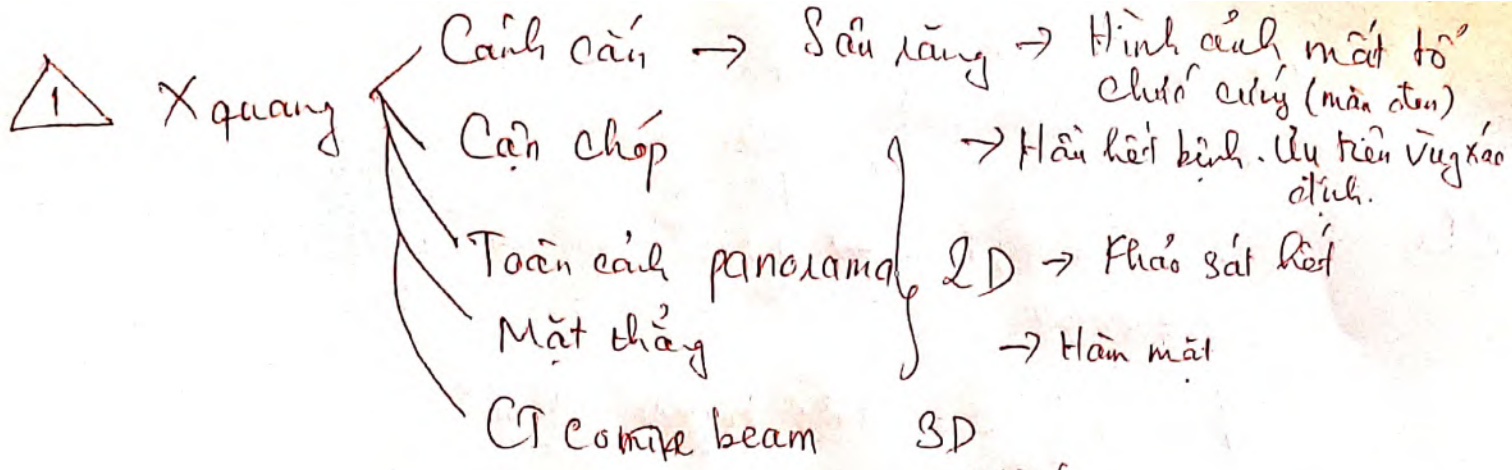 1 X quang
Cánh cắn → Sâu răng → Hình ảnh mất tổ
chức cứng (màu đen)
Cận chóp → Hầu hết bệnh. Ưu tiên vùng xác
định.
Toàn cảnh panorama 2D → Khảo sát hết
Mặt thẳng → Hàm mặt
CT beam 3D